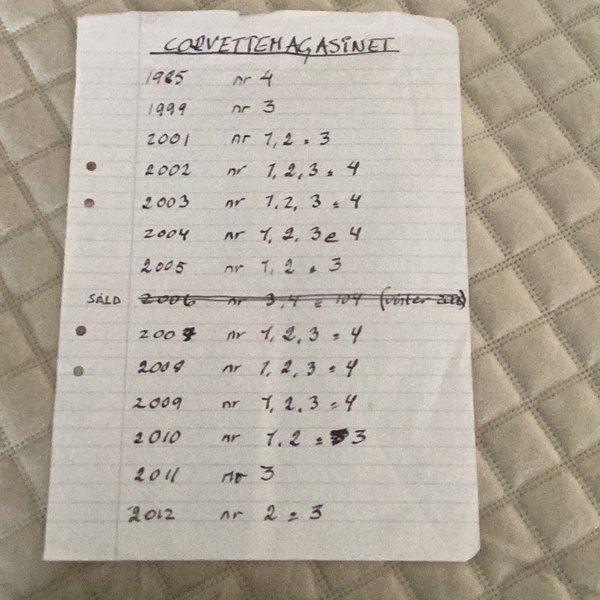 CORVETTEMAGASINET
1985 nr 4
1999 nr 3
2001 nr 1, 2 & 3
2002 nr 1, 2, 3 & 4
2003 nr 1, 2, 3 & 4
2004 nr 1, 2, 3 & 4
2005 nr 1, 2 & 3
SÅLD 2006 nr 3, 4 & 104 (vinter
2007 nr 1, 2, 3 & 4
2008 nr 1, 2, 3 & 4
2009 nr 1, 2, 3 & 4
2010 nr 1, 2 & 3
2011 nr 3
2012 nr 2 & 3